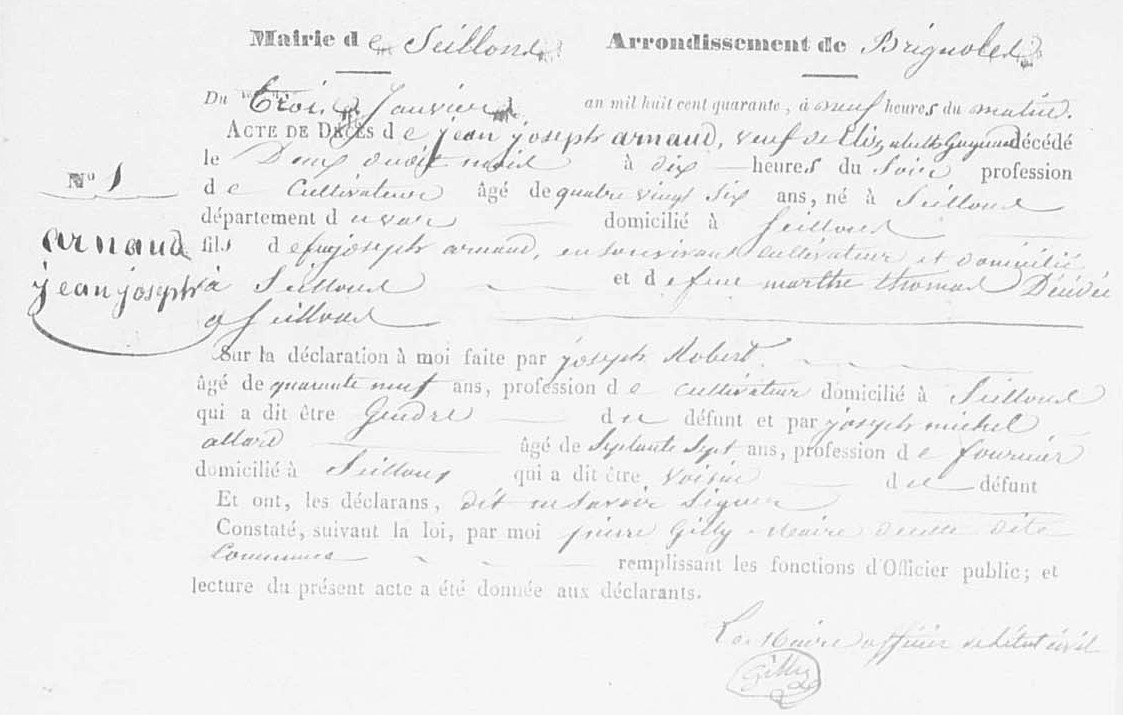 Mairie de Seillons Arrondissement de Brignoles
Du trois Janvier an mil huit cent quarante, à neuf heures du matin.
ACTE DE DÉCÈS de jean joseph arnaud, veuf de Elizabeth décédé
le Deux dudit mois à dix heures du Soir profession
de Cultivateur âgé de quatre vingt six ans, né à Seillons
département du var domicilié à Seillons
fils de feu joseph arnaud, en son vivant cultivateur et domicilié
à Seillons et de feue marthe thomas Décédée
a Seillons
N° 1
arnaud
jean joseph
Sur la déclaration à moi faite par joseph Robert
âgé de quarante neuf ans, profession de cultivateur domicilié à Seillons
qui a dit être Gendre du défunt et par joseph michel
allard âgé de Septante Sept ans, profession de fournier
domicilié à Seillons qui a dit être voisin du défunt
Et ont, les déclarans, dit ne savoir signer
Constaté, suivant la loi, par moi pierre Gilly Maire de cette dite
Commune remplissant les fonctions d'Officier public; et
lecture du présent acte a été donnée aux déclarants.
Le Maire officier de l'état civil
Gilly